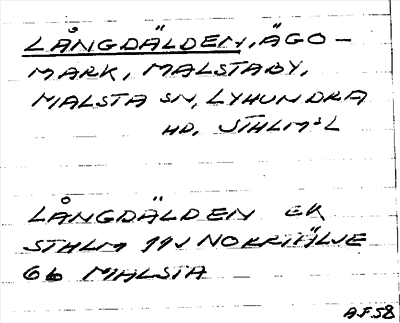 LÅNGDÄLDEN, ÄGO-
MARK, MALSTABY,
MALSTA SN, LYHUNDRA
HD, STHLMS L
LÅNGDÄLDEN EK
STHLM 11J NORRTÄLJE
6b MALSTA
A.F.58